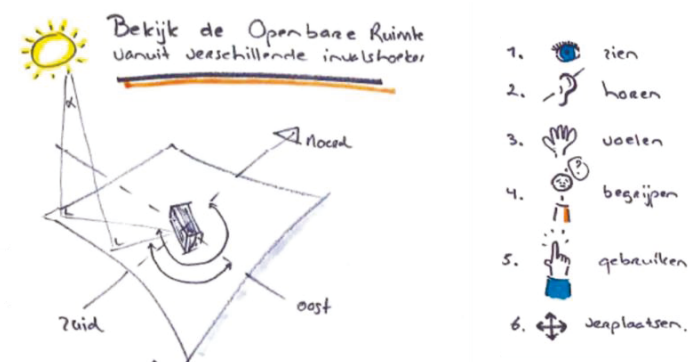 Bekijk de Openbare Ruimte
vanuit verschillende invalshoeken
α
Noord
Zuid
oost
1. zien
2. horen
3. voelen
?
4. begrijpen
5. gebruiken
6. verplaatsen.